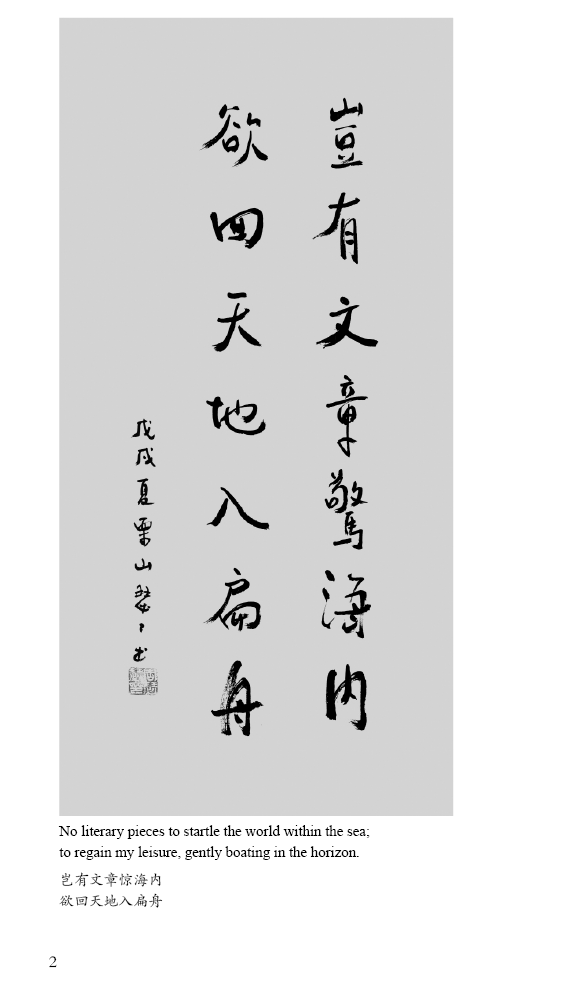 豈有文章驚海内
欲回天地入扁舟
戊戌夏栗山
书
No literary pieces to startle the world within the sea;
to regain my leisure, gently boating in the horizon.
岂有文章惊海内
欲回天地入扁舟
2